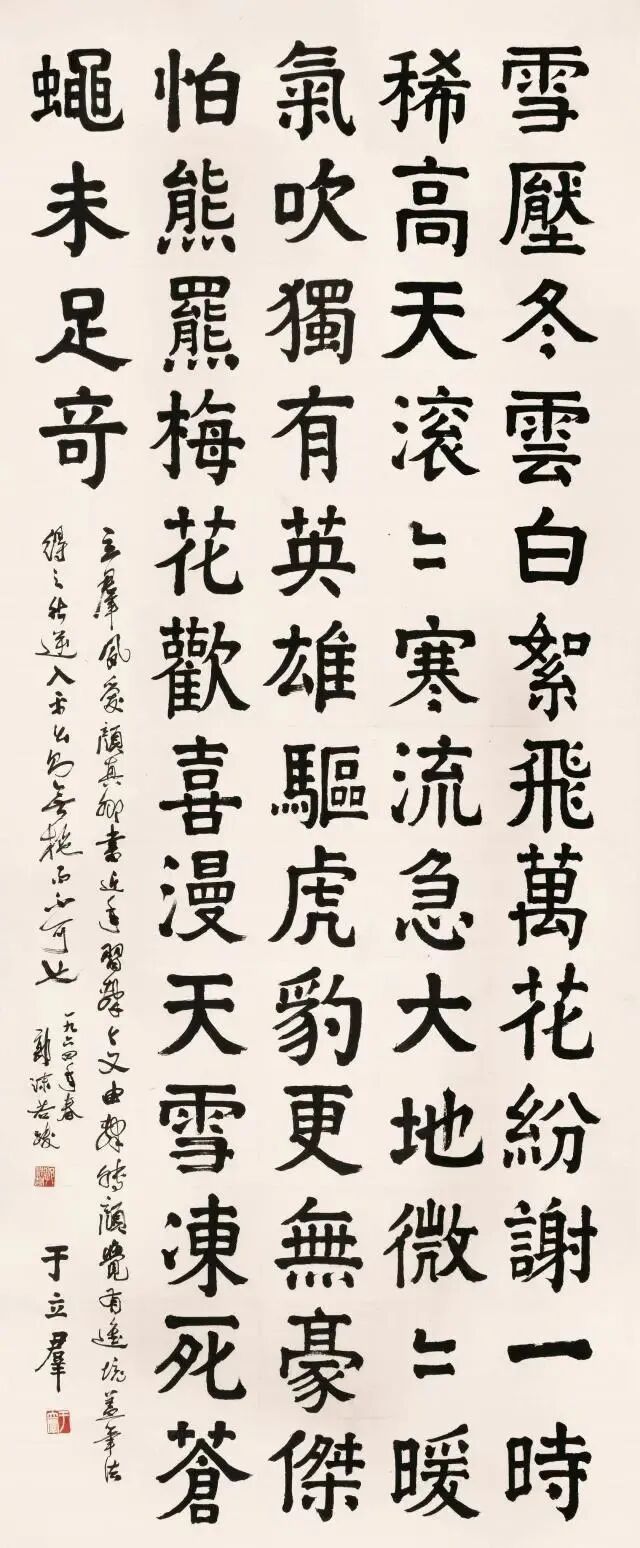 雪壓冬雲白絮飛萬花紛謝一時
稀高天滚〻寒流急大地微〻暖
氣吹獨有英雄驅虎豹更無豪傑
怕熊羆梅花歡喜漫天雪凍死蒼
蠅未足奇
立羣夙愛顏真卿書近年習隸文由隸轉顏覺有進境蓋筆法
得之能逆入平出即無施而不可也
一九六四年春
郭沫若跋
于立羣